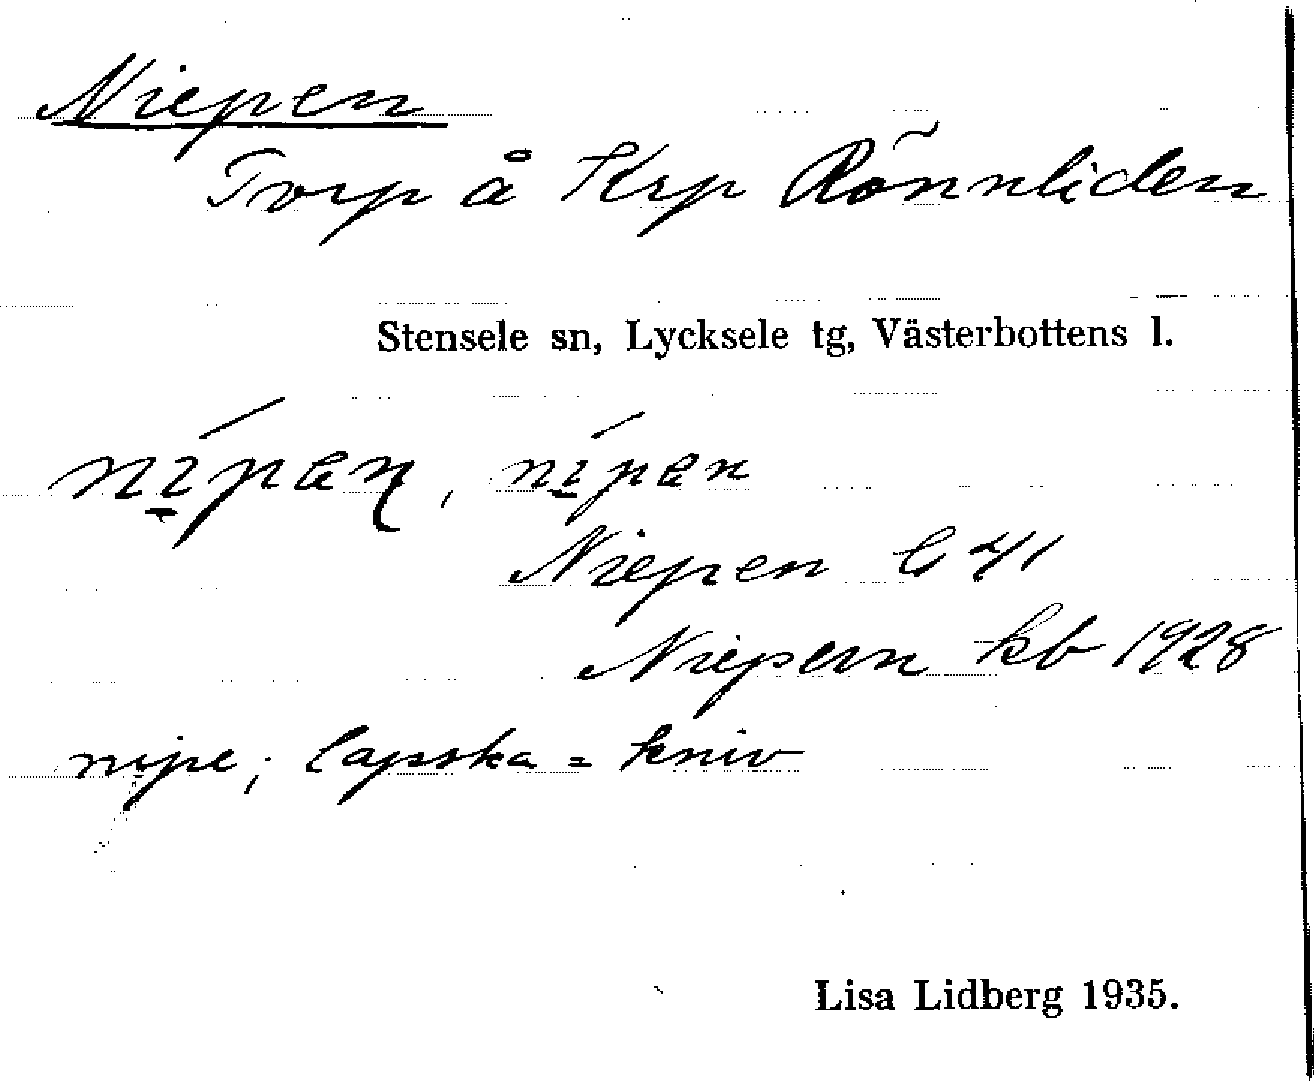 Niepen
Torp å Krp Rönnliden
Stensele sn, Lycksele tg, Västerbottens l.
Niepen C 41
Niepern kb 1928
nipe; lapska = kniv
Lisa Lidberg 1935.